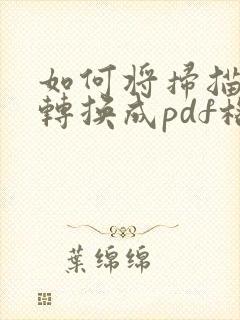 如何將掃描
轉換成pdf格
葉綿綿